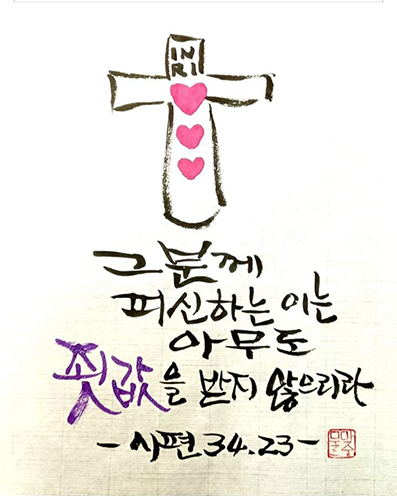 IN
RI
그분께
피신하는 이는
아무도
죗값을 받지 않으리라
- 시편 34.23 -